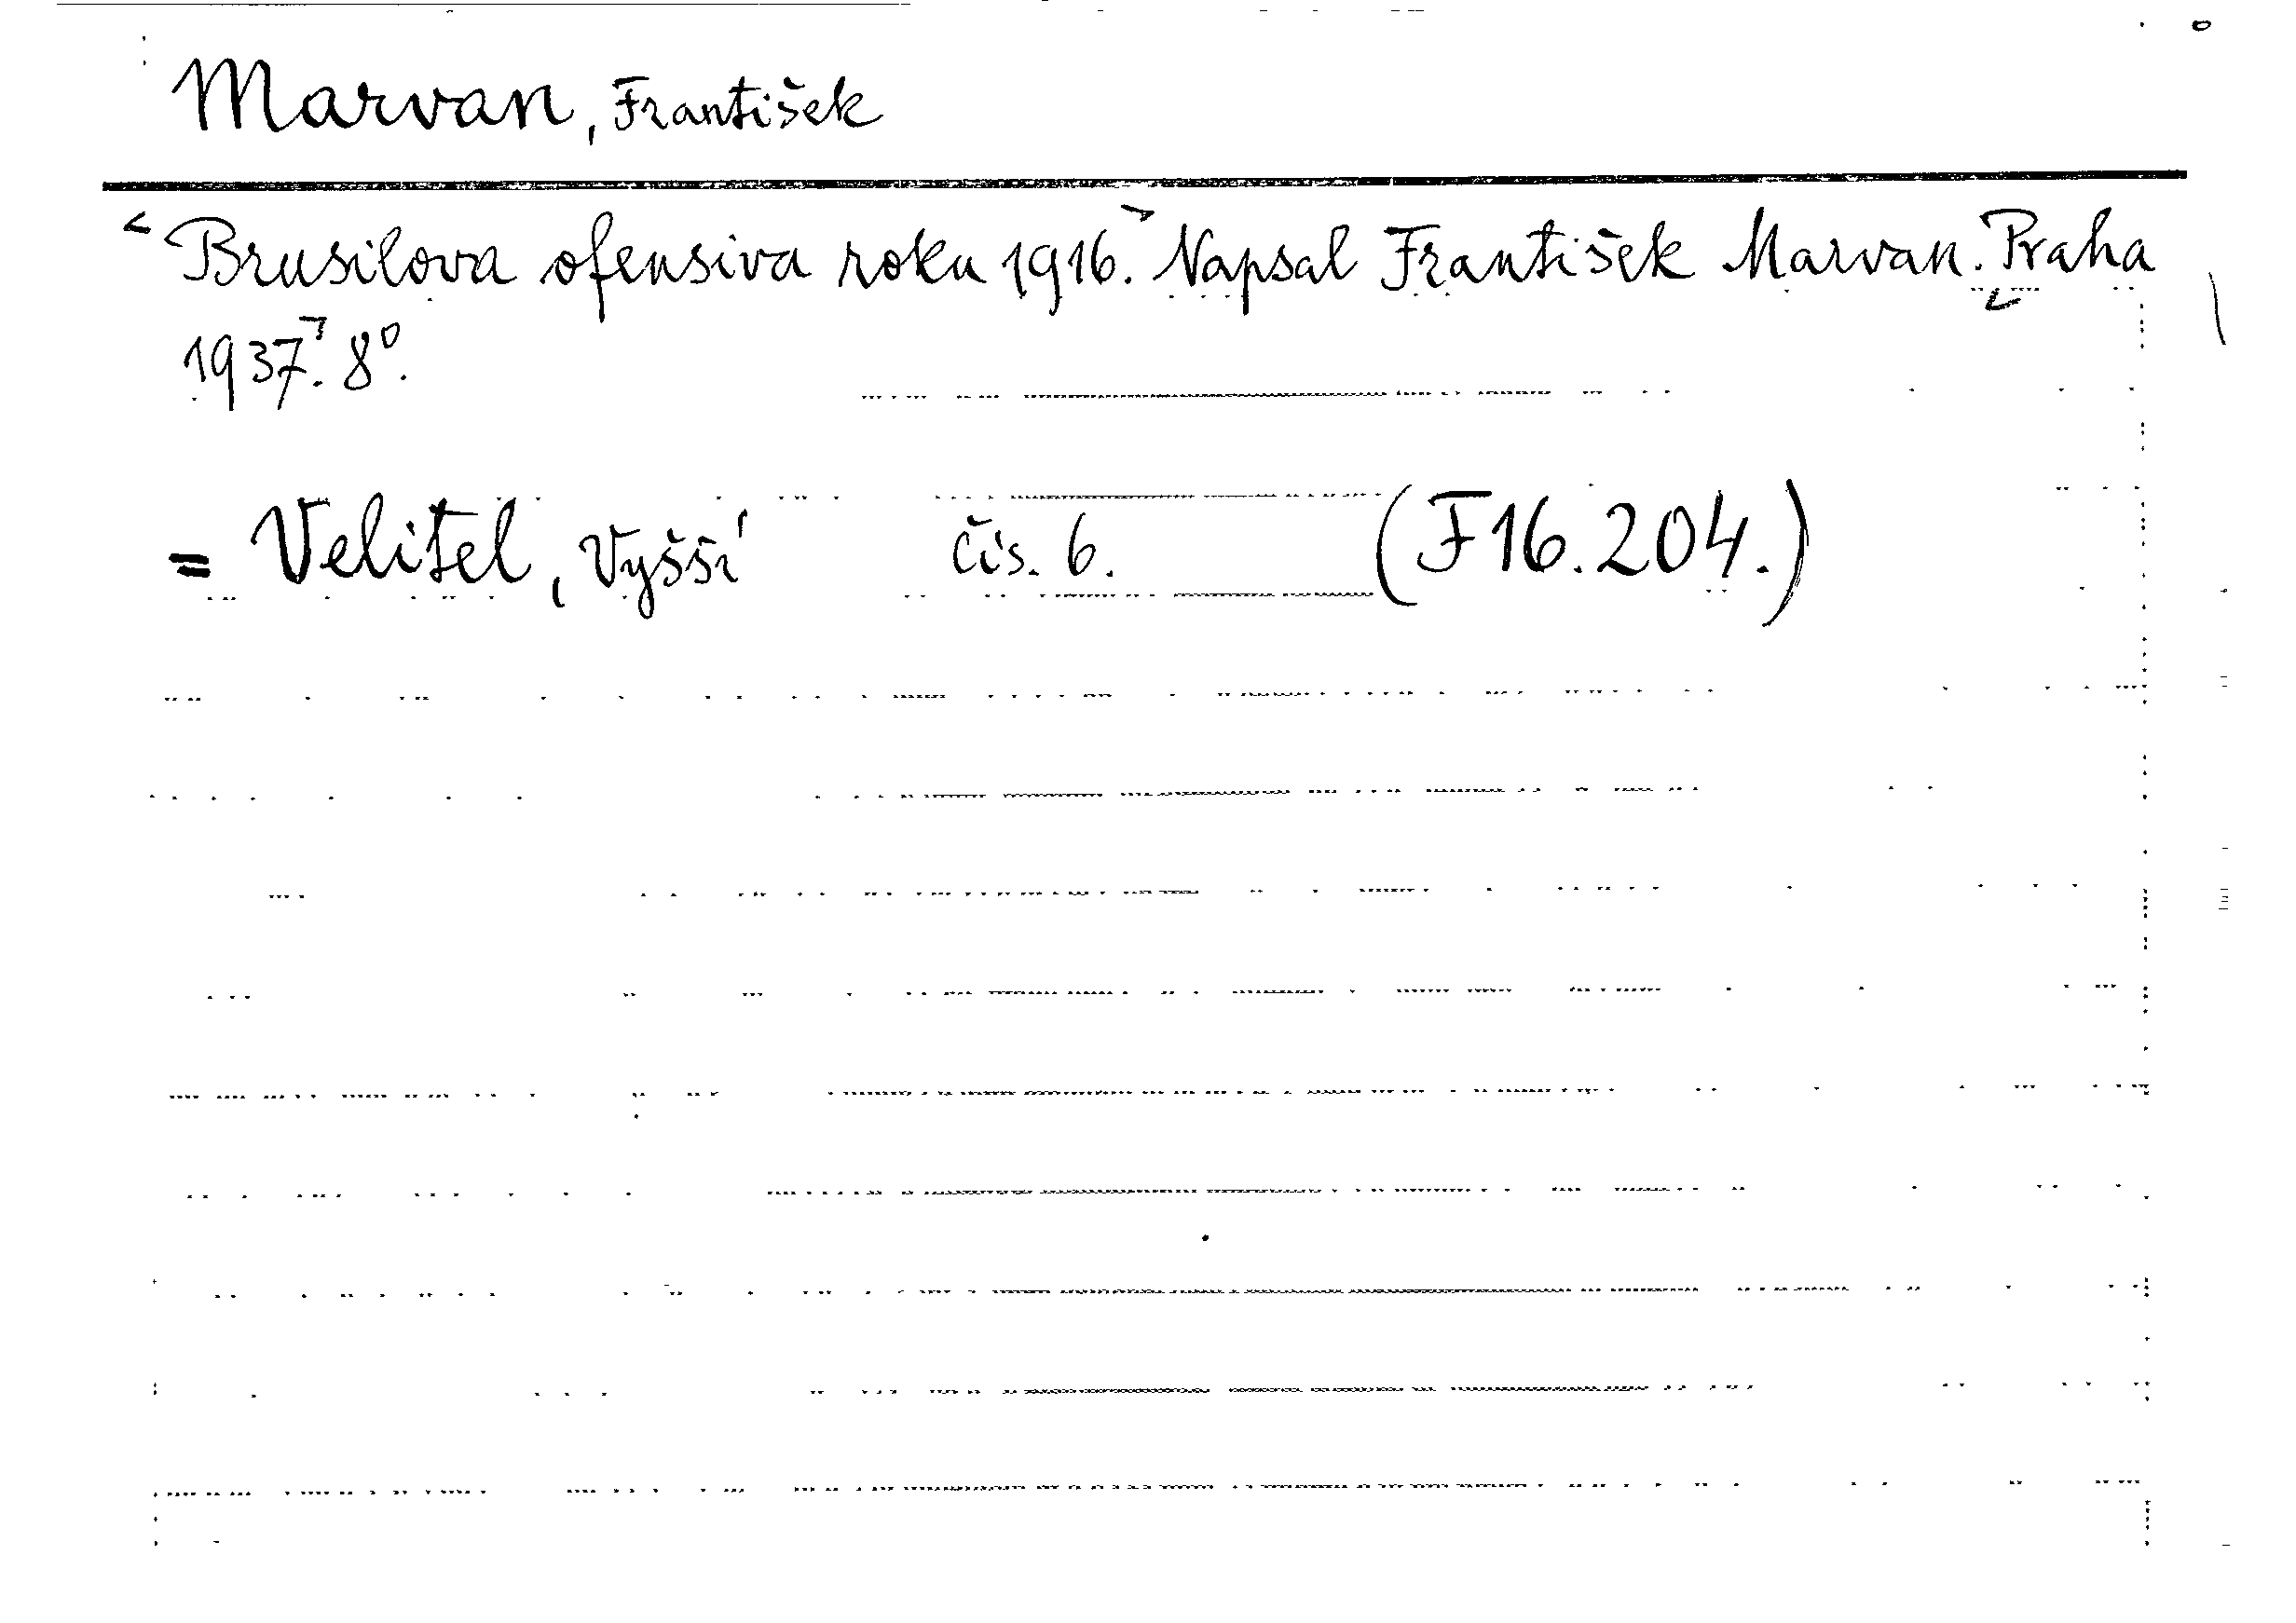 Marvan, František
<Brusilova ofensiva roku 1916.> Napsal František Marvan. <Praha
1937>. 8°.
= Velitel, Vyšší čís. 6. (F16.204.)